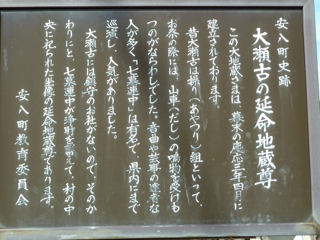 安八町史跡
大瀬古の延命地蔵尊
この大地蔵さまは、幕末の慶応三年四月に
建立されております。
昔大瀬古は操り(あやつり)組といって、
お祭の際には、山車(だし)の鳴物を受けも
つのがならわしでした。音曲や芸事の達者な
人が多く、「七墓連中」は有名で、県内にまで
巡演し、人気がありました。
大瀬古には鎮守のお社がないので、そのか
わりにと、七墓連中が浄財を出して、村の中
央に祀られた由緒の延命地蔵尊であります。
安八町教育委員会